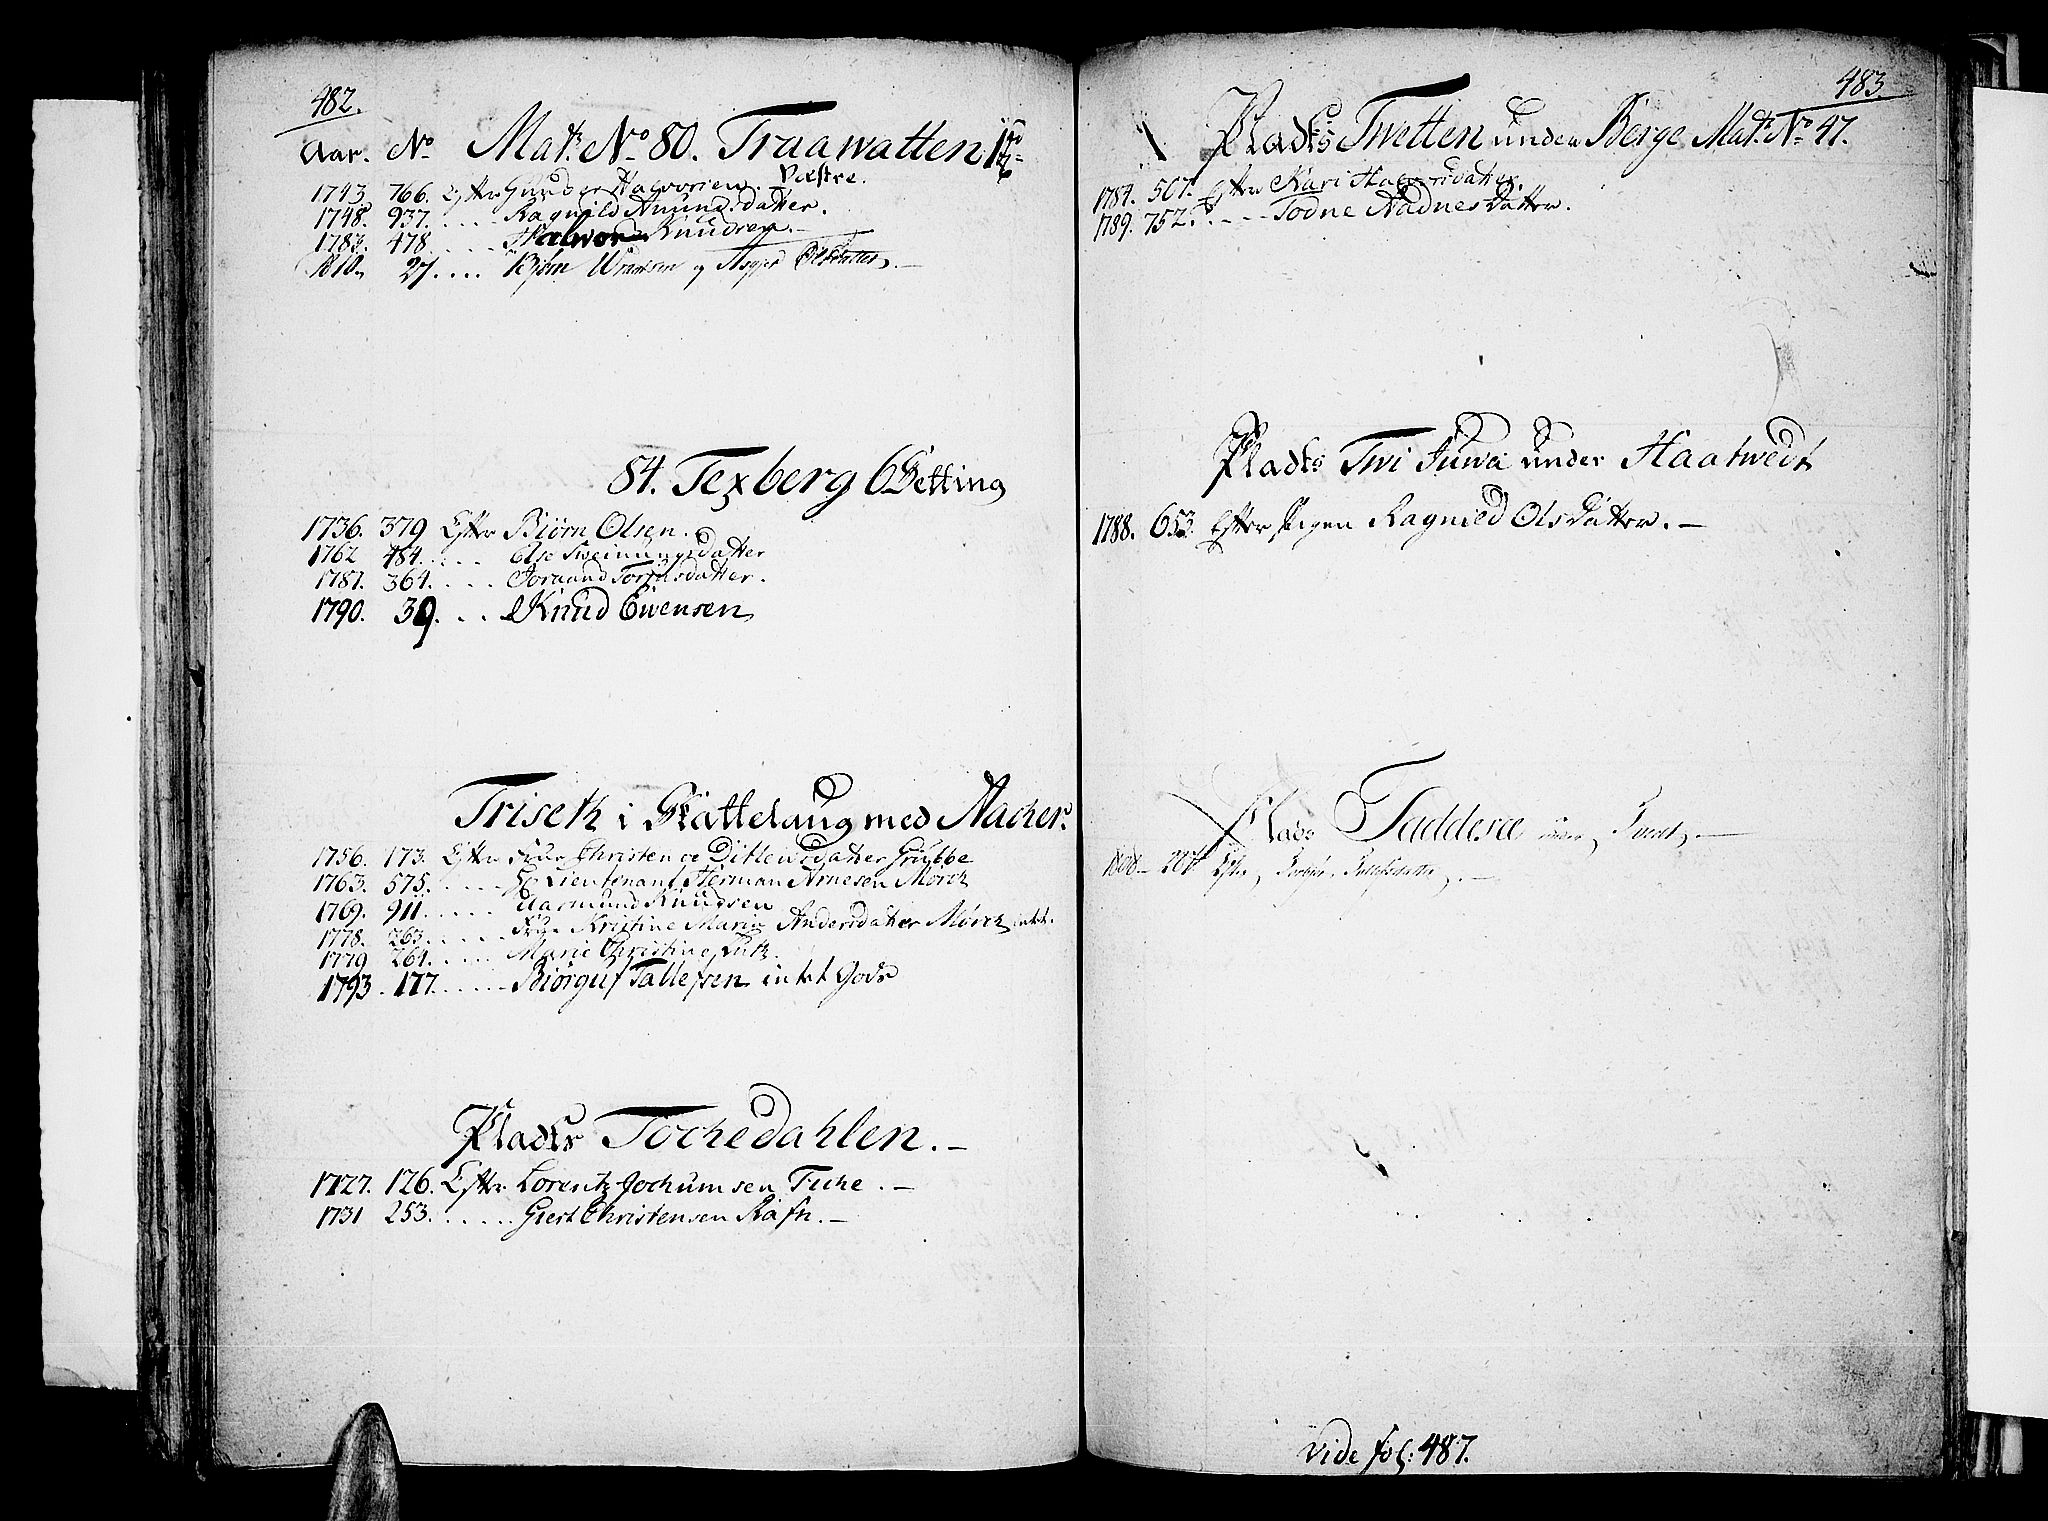 482.
Aar. No Mat. No 80. Traawatten
Væstre.
1743. 766. Efter Gunder Halvorsen
1748. 937. . . . . Ragnild Amundsdatter.
1783. 478. . . . . Halvor Knudsen.
1810. 27. . . . Biørn og Asgier Olsdatter
84. Texberg 6 Setting
1736. 379 Efter Biørn Olsen.
1762 484. . . . . Else Sveinungsdatter
1781. 364. . . . . Joraand Torjusdatter.
1790. 39. . . Knud Ewensen
Trisek i Skattelaug med Aacher.
1756. 173. Efter Frue Christence Ditlewsdatter Grubbe
1763. 575. . . . . . Hr Lieutenant Herman Arnesen Mørch
1769. 911. . . . . . Aasmund Knudsen
1778. 263. . . . . . Frue Kristine Marie Andersdatter Mørch intet.
1779 264. . . . . . Marie Christine Lutz.
1793. 177. . . . . . Biørguf Tallefsen intet Gods
Plads Tochedahlen. —
1727. 126. Efter Lorentz Jochumsen Fiche. —
1731 253. . . . . . . Giert Christensen Rafn. —
483.
Plads Twetten under Berge Mat. No 47.
1784. 507. Efter Kari Halvorsdatter.
1789. 752. . . . Todne Aadnesdatter.
Plads Twi Juwa under Haatwedt
1788. 653. Efter Pigen Ragnild Olsdatter. —
Plads Taddesæ under
1808 — Efter
Vide fol: 487.